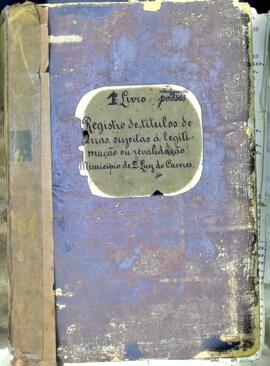 1º Livro posses
Registro de titulos de
terras, sujeitas á legiti-
mação ou revalidação.
Municipio de S. Luiz de Caceres.